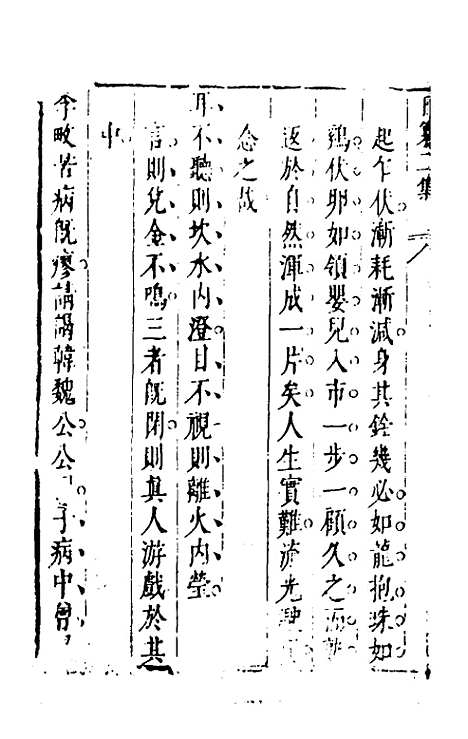 纂二集
起乍伏漸耗漸減身其銓幾必如龍抱珠如
鷄伏卵如領嬰兒入市一步一顧久之
返於自然渾成一片矣人生實難流光
念之哉
耳不聽則坎水內澄目不視則離火內瑩
言則兌金不鳴三者旣閉則眞人游戲於其
中
李畋苦病旣瘳請謁韓魏公公子病中曾